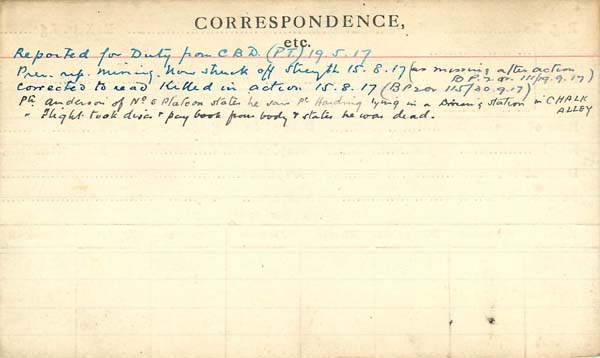 CORRESPONDENCE,
etc.
Reported for Duty from C.B.D. (PT) 19.5.17
Prev. rep. missing. Now struck off strength 15.8.17 (as missing after action
B.P. 2 or. 111/19.9.17)
corrected to read Killed in action 15.8.17 (BP 2 or 115/30.9.17)
Pte Anderson of No 6 Platoon states he saw Pt Harding lying in a Dressing Station in CHALK
ALLEY
" Flight took discs & pay book from body & states he was dead.